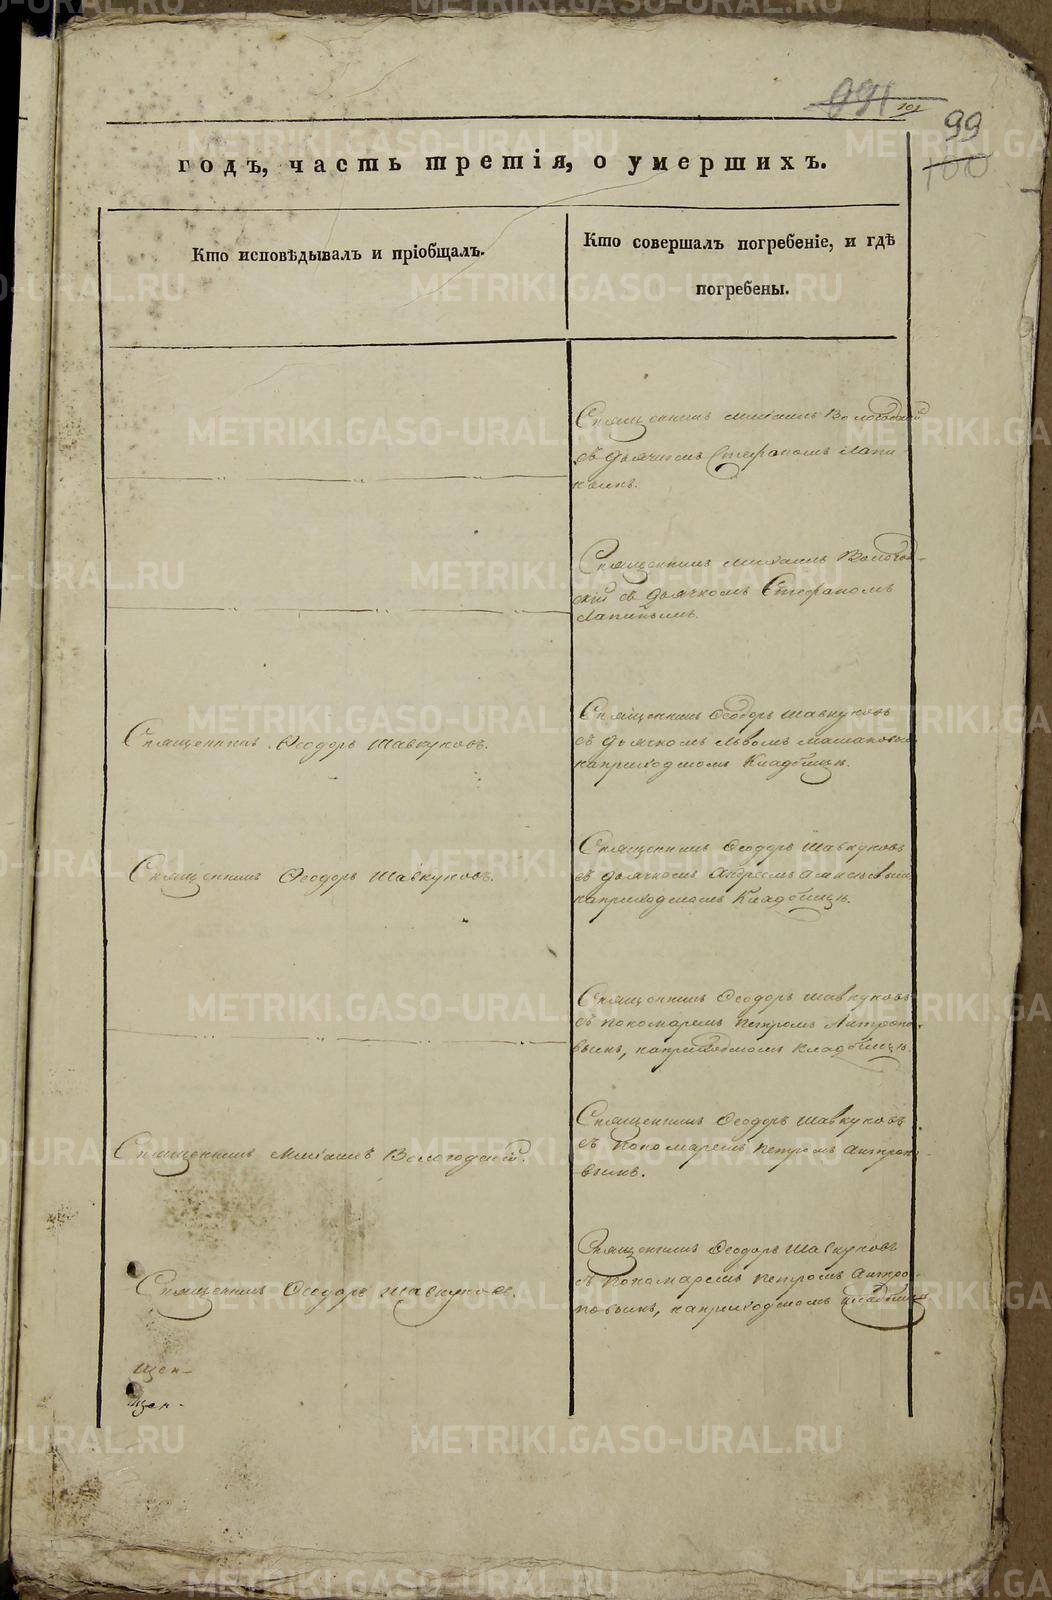 991 101
99
100
годъ, часть третія, о умершихъ.
Кто исповѣдывалъ и пріобщалъ.
Кто совершалъ погребеніе, и гдѣ
погребены.
Священникъ Михаилъ Вологодскій
съ дьячкомъ Стефаномъ Лапи-
нымъ.
Священникъ Михаилъ Вологод-
скій съ дьячкомъ Стефаномъ
Лапинымъ.
Священникъ Ѳеодоръ Шавкуновъ.
Священникъ Ѳеодоръ Шавкуновъ
съ дьячкомъ Львомъ
на приходскомъ кладбищѣ.
Священникъ Ѳеодоръ Шавкуновъ.
Священникъ Ѳеодоръ Шавкуновъ
съ дьячкомъ Андреемъ
на приходскомъ кладбищѣ.
Священникъ Ѳеодоръ Шавкуновъ
съ пономаремъ Петромъ Антропо-
вымъ, на приходскомъ кладбищѣ.
Священникъ Михаилъ Вологодскій.
Священникъ Ѳеодоръ Шавкуновъ
съ пономаремъ Петромъ Антропо-
вымъ.
Священникъ Ѳеодоръ Шавкуновъ.
Священникъ Ѳеодоръ Шавкуновъ
съ пономаремъ Петромъ Антро-
повымъ, на приходскомъ кладбищѣ
щен-
щен-
METRIKI.GASO-URAL.RU